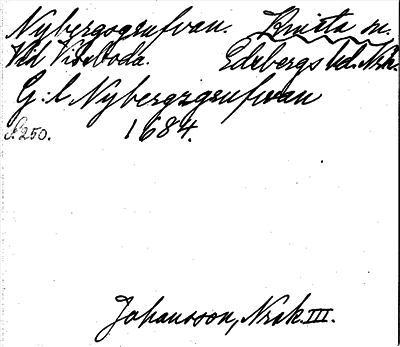 Nybergsgrufvan. Knista sn.
Vid Viseboda. Edsbergs hd. Nrk.
G:l Nybergzgrufwan
S. 250. 1684.
Johansson, Nrak. III.